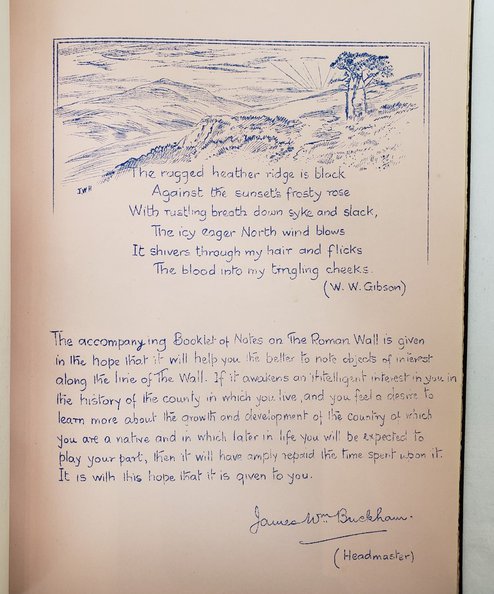 JWB
The rugged heather ridge is black
Against the sunset's frosty rose
With rustling breath down syke and slack,
The icy eager North wind blows
It shivers through my hair and flicks
The blood into my tingling cheeks.
(W. W. Gibson)
The accompanying Booklet of Notes on The Roman Wall is given
in the hope that it will help you the better to note objects of interest
along the line of The Wall. If it awakens an intelligent interest in you, in
the history of the county in which you live, and you feel a desire to
learn more about the growth and development of the country of which
you are a native and in which later in life you will be expected to
play your part, then it will have amply repaid the time spent upon it.
It is with this hope that it is given to you.
James Wm Buckham.
(Headmaster)